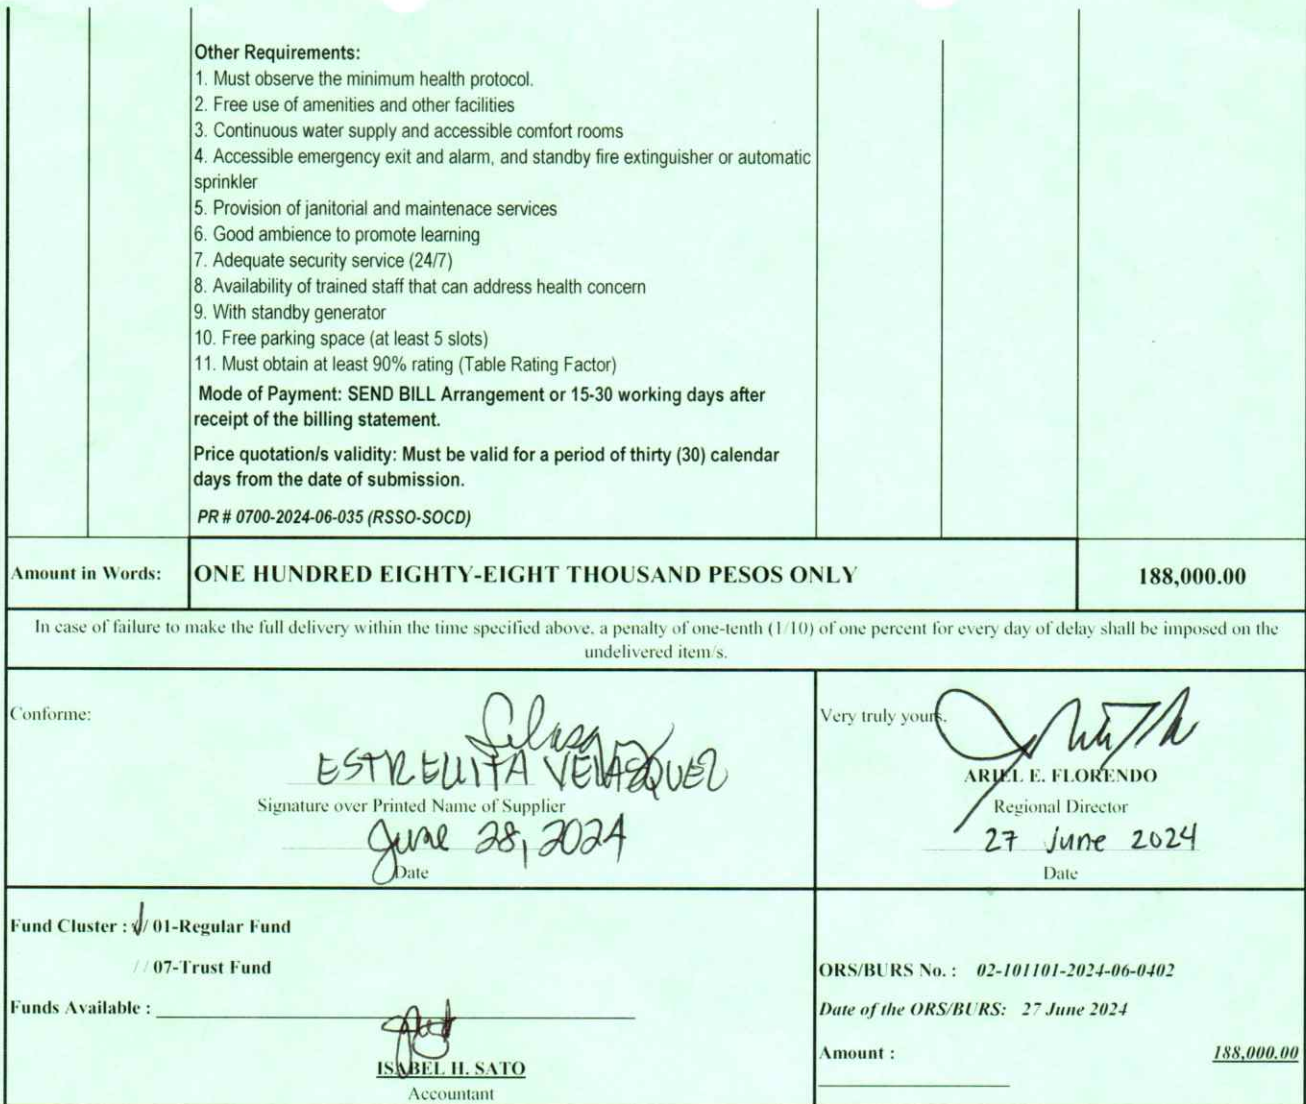 Other Requirements:
1. Must observe the minimum health protocol.
2. Free use of amenities and other facilities
3. Continuous water supply and accessible comfort rooms
4. Accessible emergency exit and alarm, and standby fire extinguisher or automatic
sprinkler
5. Provision of janitorial and maintenace services
6. Good ambience to promote learning
7. Adequate security service (24/7)
8. Availability of trained staff that can address health concern
9. With standby generator
10. Free parking space (at least 5 slots)
11. Must obtain at least 90% rating (Table Rating Factor)
Mode of Payment: SEND BILL Arrangement or 15-30 working days after
receipt of the billing statement.
Price quotation/s validity: Must be valid for a period of thirty (30) calendar
days from the date of submission.
PR # 0700-2024-06-035 (RSSO-SOCD)
Amount in Words: ONE HUNDRED EIGHTY-EIGHT THOUSAND PESOS ONLY 188,000.00
In case of failure to make the full delivery within the time specified above, a penalty of one-tenth (1/10) of one percent for every day of delay shall be imposed on the
undelivered item/s.
Conforme:
ESTRELLITA VELASQUEZ
Signature over Printed Name of Supplier
June 28, 2024
Date
Very truly yours,
ARIEL E. FLORENDO
Regional Director
27 June 2024
Date
Fund Cluster : / / 01-Regular Fund
/ / 07-Trust Fund
Funds Available :
ISABEL H. SATO
Accountant
ORS/BURS No. : 02-101101-2024-06-0402
Date of the ORS/BURS: 27 June 2024
Amount : 188,000.00